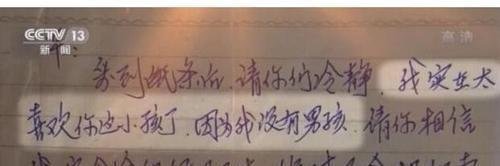 CCTV 13
新闻
高清
看到纸条后，请你们冷静，我实在太
喜欢你这小孩了，因为我没有男孩，请你相信